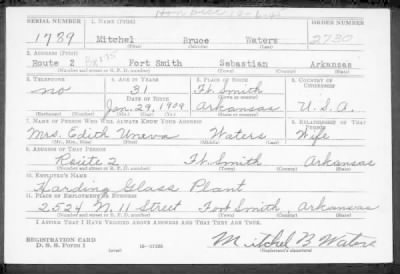 SERIAL NUMBER 1. NAME (Print) ORDER NUMBER
1789 Mitchel Bruce Waters 2730
(First) (Middle) (Last)
2. ADDRESS (Print)
Route 2 Box 175 Fort Smith Sebastian Arkansas
(Number and street or R. F. D. number) (Town) (County) (State)
3. TELEPHONE 4. AGE IN YEARS 5. PLACE OF BIRTH 6. COUNTRY OF CITIZENSHIP
no 31 Ft. Smith
DATE OF BIRTH (Town or county)
Jan. 29, 1909 Arkansas U.S.A.
(Exchange) (Number) (Mo.) (Day) (Yr.) (State or country)
7. NAME OF PERSON WHO WILL ALWAYS KNOW YOUR ADDRESS 8. RELATIONSHIP OF THAT PERSON
Mrs. Edith Uneva Waters Wife
(Mr., Mrs., Miss) (First) (Middle) (Last)
9. ADDRESS OF THAT PERSON
Route 2 Ft. Smith Arkansas
(Number and street or R. F. D. number) (Town) (County) (State)
10. EMPLOYER'S NAME
Harding Glass Plant
11. PLACE OF EMPLOYMENT OR BUSINESS
2524 N. 11 Street Fort Smith, Arkansas
(Number and street or R. F. D. number) (Town) (County) (State)
I AFFIRM THAT I HAVE VERIFIED ABOVE ANSWERS AND THAT THEY ARE TRUE.
REGISTRATION CARD
D. S. S. Form 1 (over) Mitchel B Waters
(Registrant's signature)